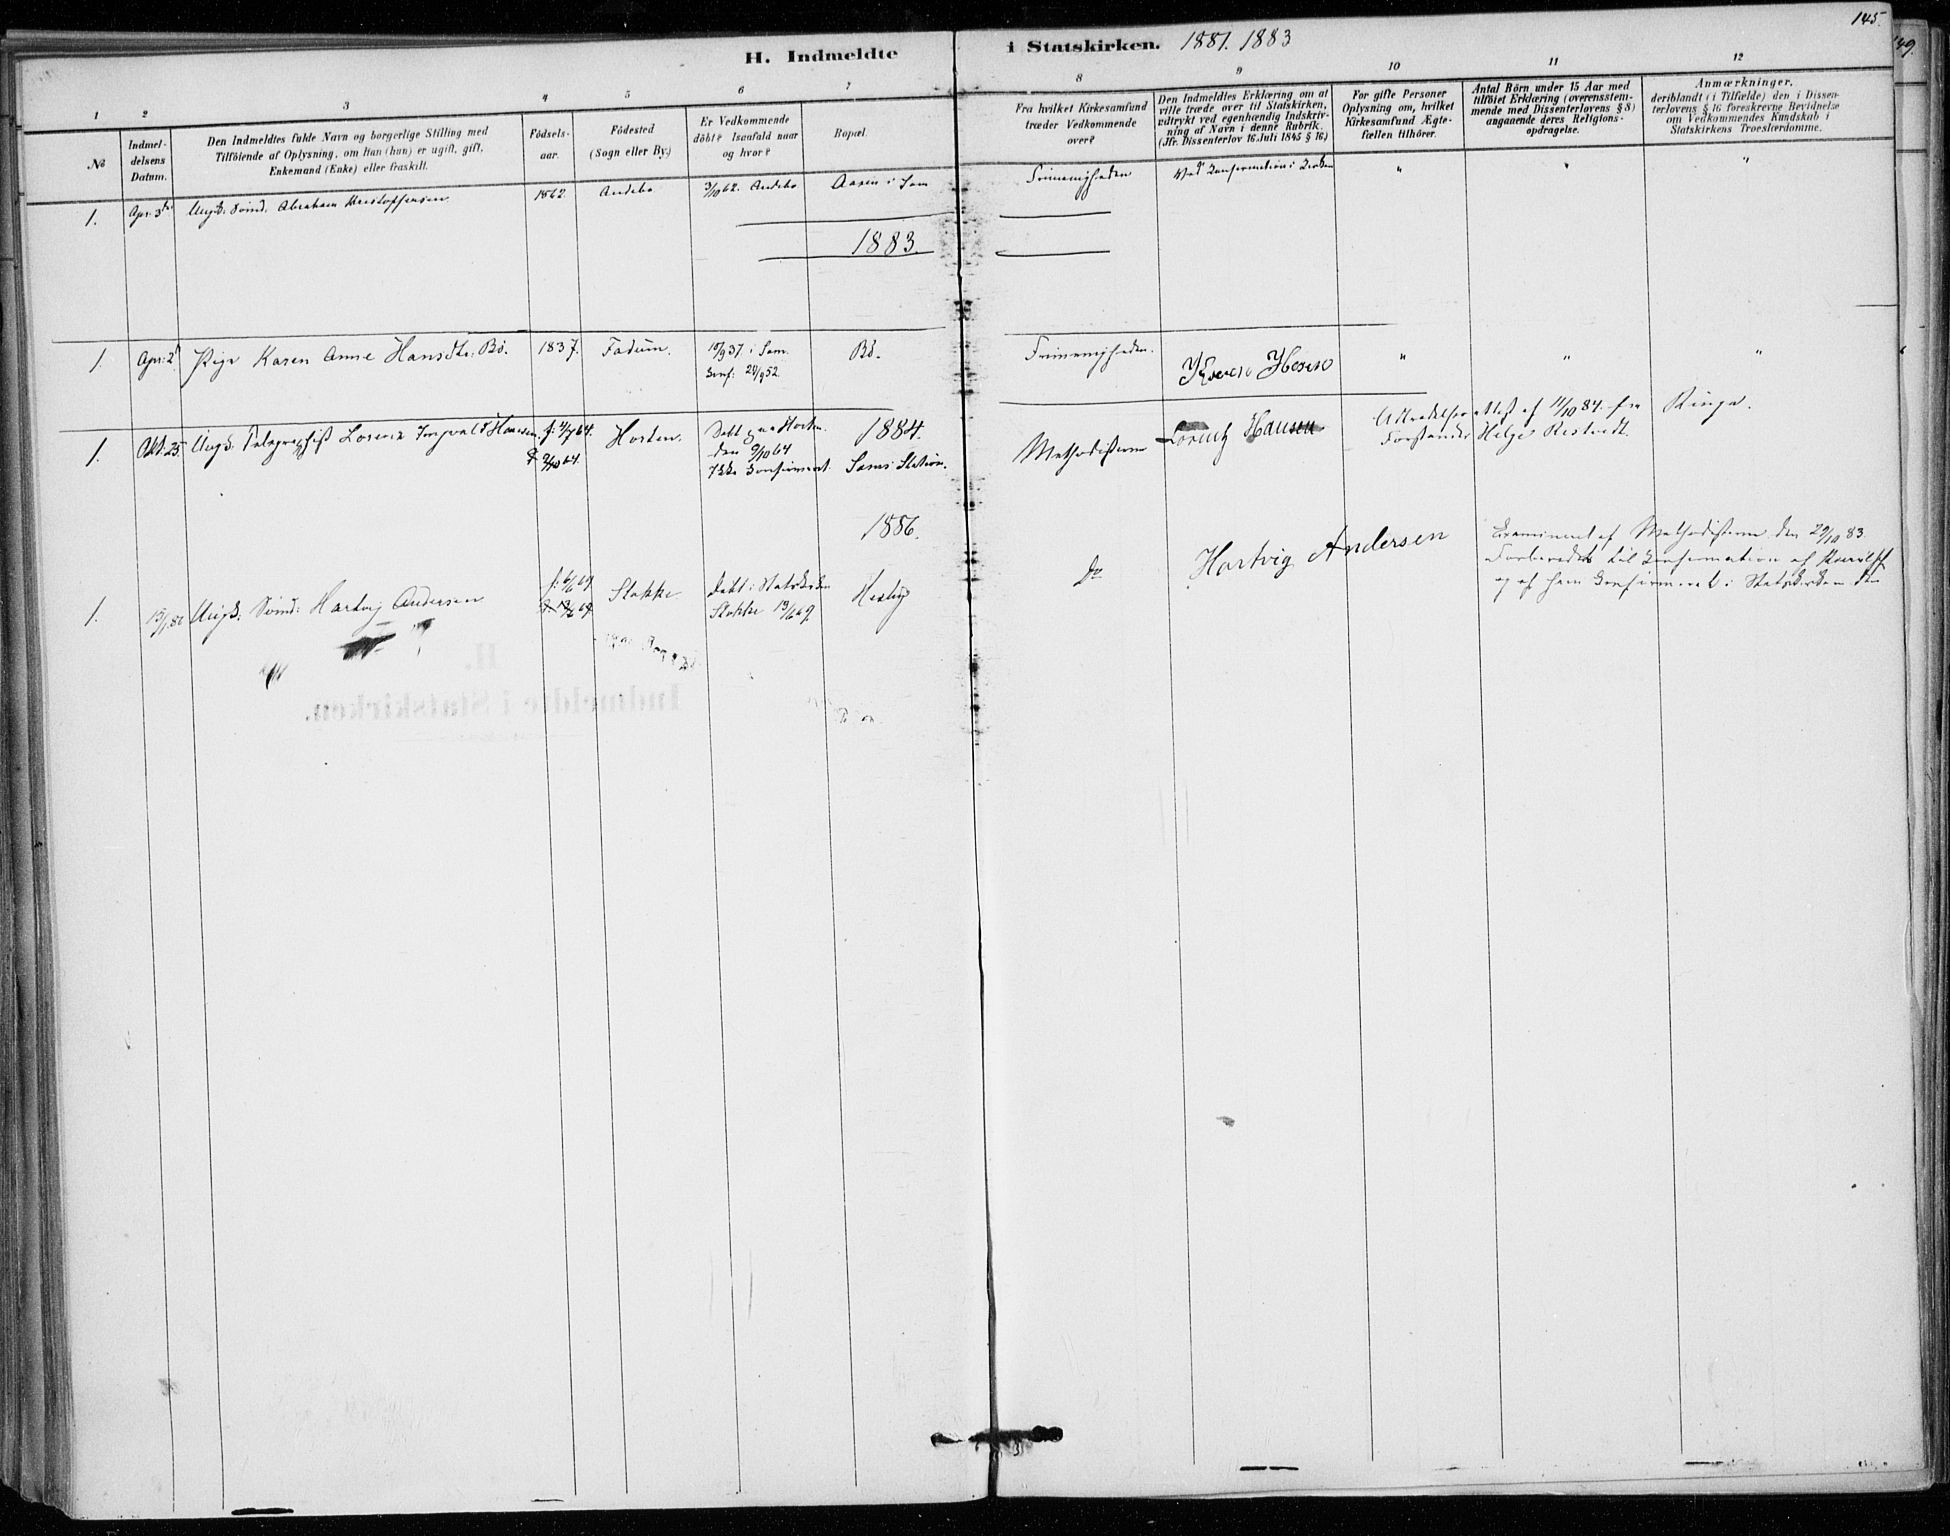 145.
149.
H. Indmeldte i Statskirken. 1881. 1883
1 2 3 4 5 6 7 8 9 10 11 12
No
Indmel-
delsens
Datum.
Den Indmeldtes fulde Navn og borgerlige Stilling med
Tilföiende af Oplysning, om han (hun) er ugift, gift,
Enkemand (Enke) eller fraskilt.
Födsels-
aar.
Födested
(Sogn eller By.)
Er Vedkommende
döbt? Isaafald naar
og hvor?
Bopæl.
Fra hvilket Kirkesamfund
træder Vedkommende
over?
Den Indmeldtes Erklæring om at
ville træde over til Statskirken,
udtrykt ved egenhændig Indskriv-
ning af Navn i denne Rubrik.
(Jfr. Dissenterlov 16. Juli 1845 § 16.)
For gifte Personer
Oplysning om, hvilket
Kirkesamfund Ægte-
fællen tilhörer.
Antal Börn under 15 Aar med
tilföiet Erklæring (overensstem-
mende med Dissenterlovens § 8)
angaaende deres Religions-
opdragelse.
Anmærkninger,
deriblandt (i Tilfælde) den i Dissen-
terlovens § 16 foreskrevne Bevidnelse
om Vedkommendes Kundskab i
Statskirkens Troeslærdomme.
1. Apr: 3die Ungk: Svend. Abraham Kristoffersen 1862. Andebo 3/10 62. Andebo Aasen i Sem Frimenigheden Ved Konfirmation i Kirken " " "
1883.
1. Apr: 2 Pige Karen Anne Hansdtr: Bö. 1837. Fadum. 10/9 37. i Sem. Bö. Frimenigheden. " " "
Conf: 20/9 52.
1884.
1. Okt: 25 Ungk: Telegrafist Lorenz Ingvald Hansen f: 4/7 64. Horten. Döbt paa Horten Methodisterne Lorentz Hansen Udtrædelsesattest af 11/10 84. fra Ringe.
D 9/10 64. den 9/10 64 Forstander Helge Restvedt.
Ikke Konfirmeret. Sems Station.
1886.
1. 15/1 86 Ungk: Svend: Hartvig Andersen f. 6/6 69 Stokke Döbt i Statskirken Hesby do Hartvig Andersen Examineret af Methodisterne den 29/10 83.
D. 13/6 69. Stokke 13/6 69. Forberedt til Konfirmation af
og af ham Konfirmeret i Statskirken den
H.
Indmeldte i Statskirken.